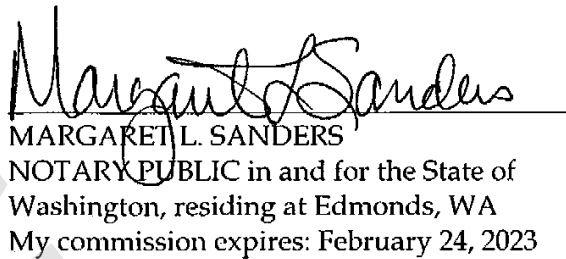 Margaret L Sanders
MARGARET L. SANDERS
NOTARY PUBLIC in and for the State of
Washington, residing at Edmonds, WA
My commission expires: February 24, 2023